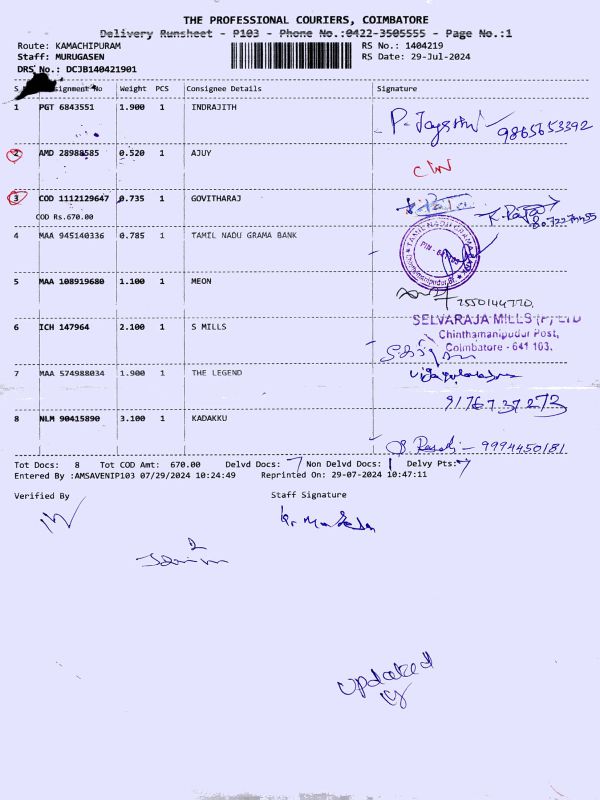 THE PROFESSIONAL COURIERS, COIMBATORE
Delivery Runsheet - P103 - Phone No.:0422-3505555 - Page No.:1
Route: KAMACHIPURAM
RS No.: 1404219
Staff: MURUGASEN
RS Date: 29-Jul-2024
DRS No.: DCJB140421901
S No Weight PCS Consignee Details Signature
1 PGT 6843551 1.900 1 INDRAJITH
9865653392
2 AMD 28988585 0.520 1 AJUY
3 COD 1112129647 0.735 1 GOVITHARAJ
COD Rs.670.00
4 MAA 945140336 0.785 1 TAMIL NADU GRAMA BANK
TAMIL NADU GRAMA
5 MAA 108919680 1.100 1 MEON
SELVARAJA MILLS (P) LTD
Chinthamanipudur Post,
Coimbatore - 641 103.
6 ICH 147964 2.100 1 S MILLS
7 MAA 574988034 1.900 1 THE LEGEND
9176737273
8 NLM 90415890 3.100 1 KADAKKU
9994450181
Tot Docs: 8 Tot COD Amt: 670.00 Delvd Docs: 7 Non Delvd Docs: 1 Delvy Pts: 7
Entered By :AMSAVENIP103 07/29/2024 10:24:49 Reprinted On: 29-07-2024 10:47:11
Verified By
Staff Signature
updated